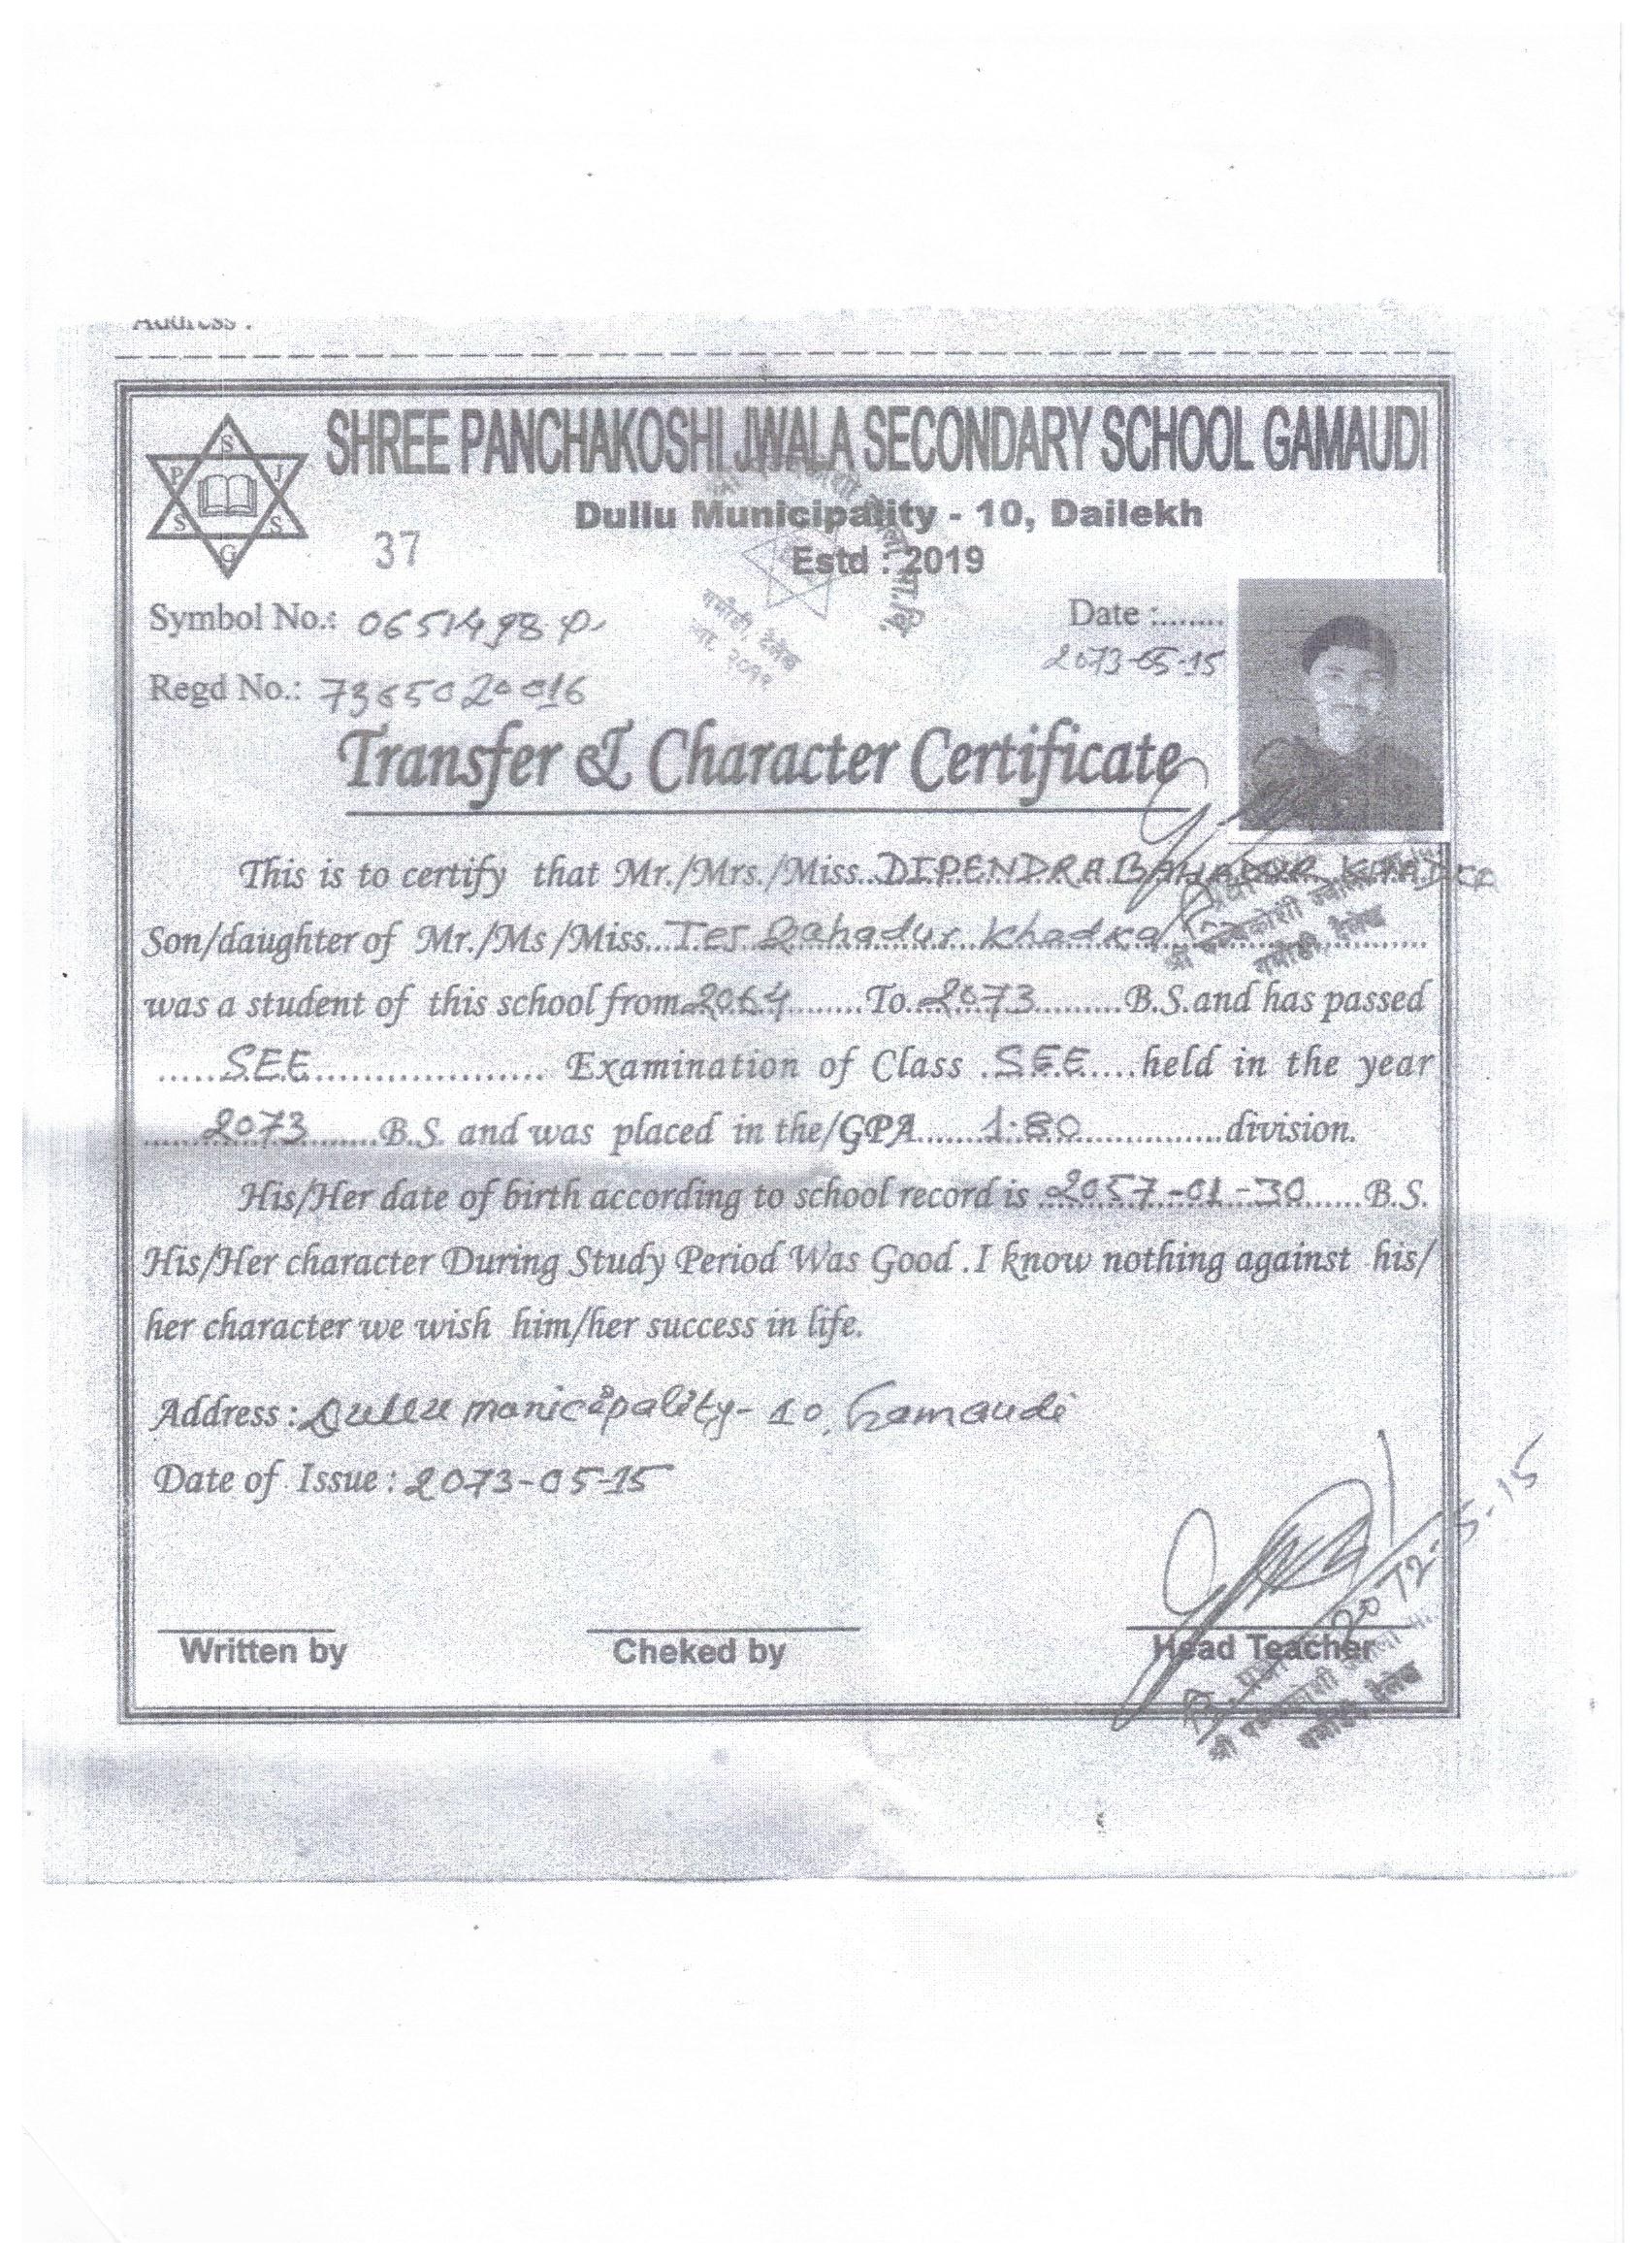 SHREE PANCHAKOSHI JWALA SECONDARY SCHOOL GAMAUDI
S
P J
S S
G
Dullu Municipality - 10, Dailekh
37
Estd : 2019
Symbol No.: 0651498 P
Date :........
2073-05-15
गमौडी, दैलेख
Regd No.: 7365020016
Transfer & Character Certificate
This is to certify that Mr./Mrs./Miss..DIPENDRA BAHADUR KHADKA
Son/daughter of Mr./Ms /Miss...Tej Bahadur Khadka
was a student of this school from 2064........To..2073.........B.S.and has passed
.....SEE...................... Examination of Class .SEE.....held in the year
......2073.......B.S. and was placed in the/GPA......1.80..............division.
His/Her date of birth according to school record is ..2057-01-30......B.S.
His/Her character During Study Period Was Good .I know nothing against his/
her character we wish him/her success in life.
Address : Dullu municipality- 10, Gamaudi
Date of Issue : 2073-05-15
Written by
Cheked by
Head Teacher
गमौडी, दैलेख